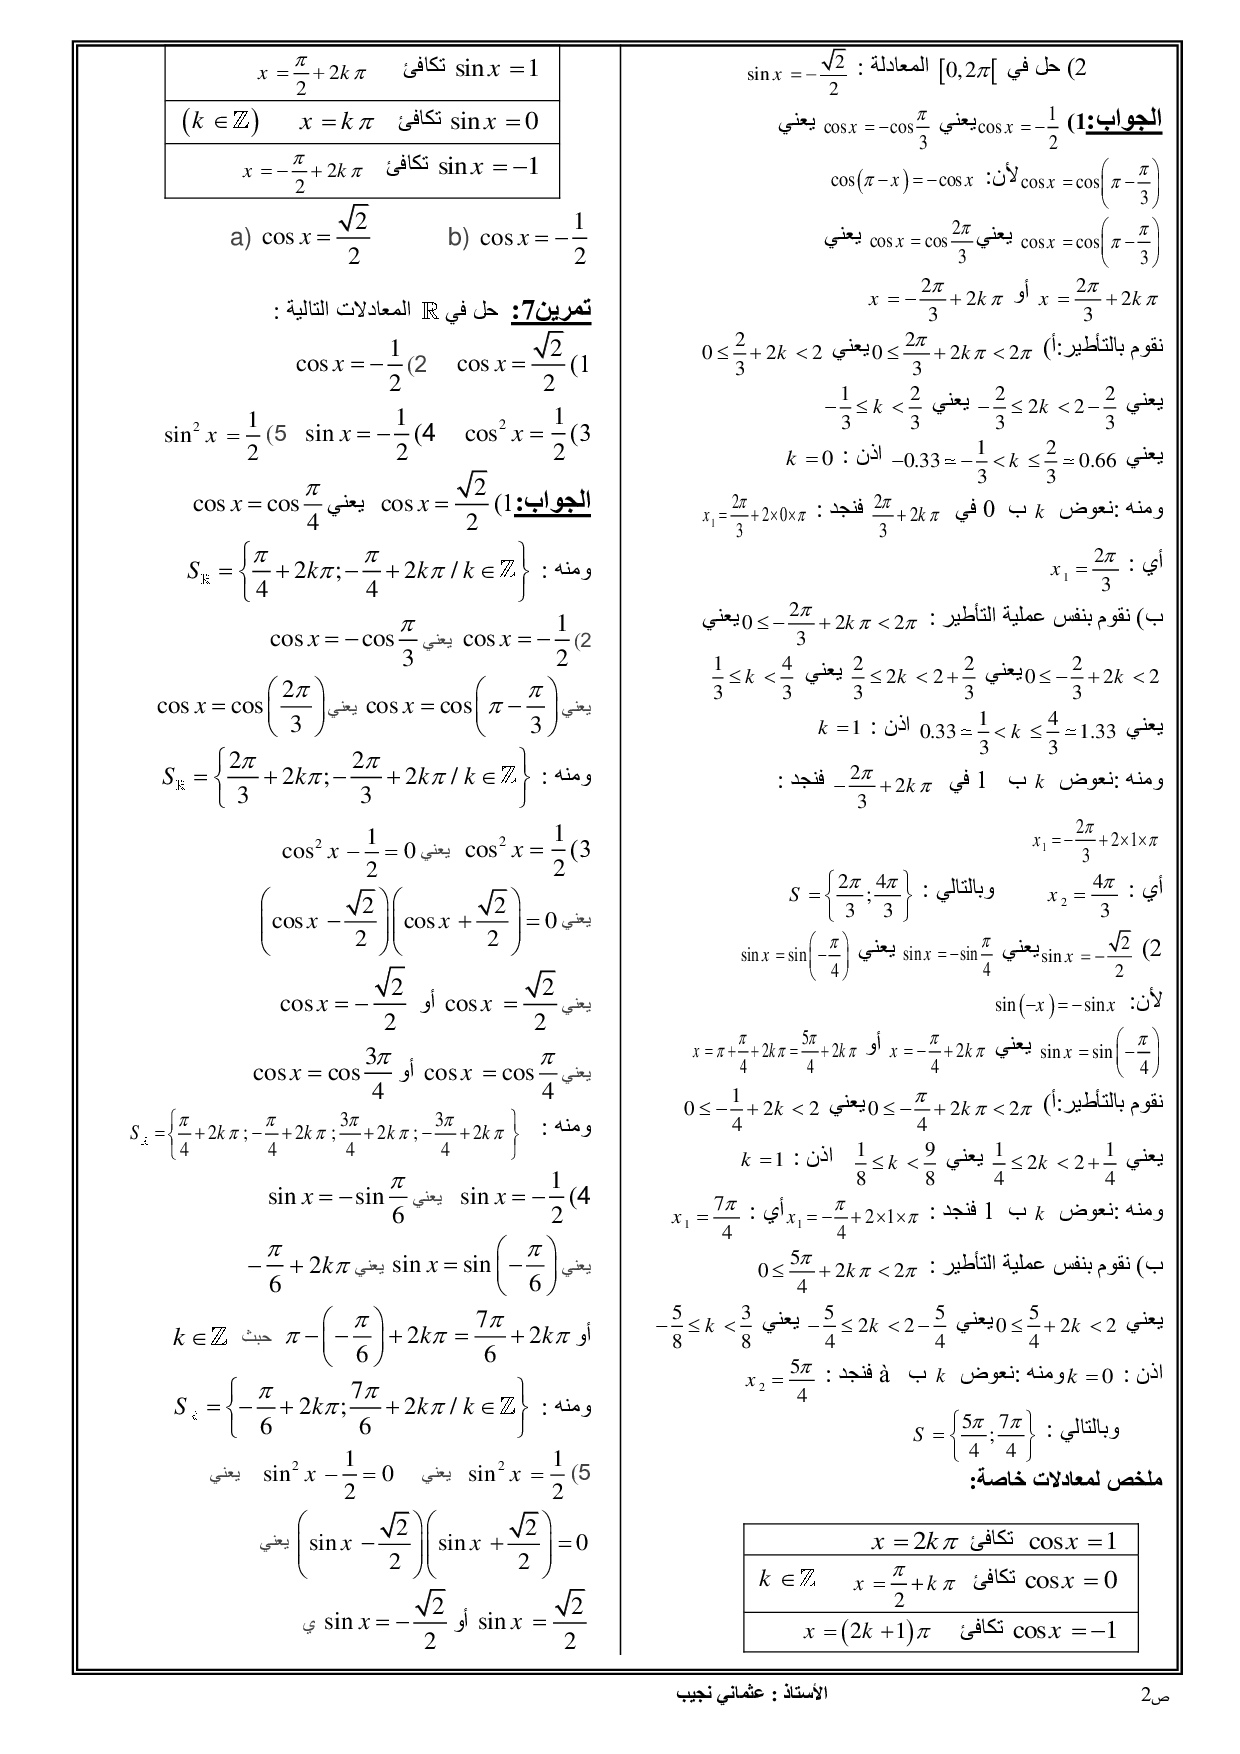 2) حل في [0,2π[ المعادلة : sin x = −√2/2
الجواب:1) cos x = −1/2 يعني cos x = −cos π/3 يعني
cos x = cos(π − π/3) لأن: cos(π − x) = −cos x
cos x = cos(π − π/3) يعني cos x = cos 2π/3 يعني
x = 2π/3 + 2kπ أو x = −2π/3 + 2kπ
نقوم بالتأطير:أ) 0 ≤ 2π/3 + 2kπ < 2π يعني 0 ≤ 2/3 + 2k < 2
يعني −2/3 ≤ 2k < 2 − 2/3 يعني −1/3 ≤ k < 2/3
يعني −0.33 ≃ −1/3 < k ≤ 2/3 ≃ 0.66 اذن : k = 0
ومنه :نعوض k ب 0 في 2π/3 + 2kπ فنجد : x₁ = 2π/3 + 2×0×π
أي : x₁ = 2π/3
ب) نقوم بنفس عملية التأطير : 0 ≤ −2π/3 + 2kπ < 2π يعني
0 ≤ −2/3 + 2k < 2 يعني 2/3 ≤ 2k < 2 + 2/3 يعني 1/3 ≤ k < 4/3
يعني 0.33 ≃ 1/3 < k ≤ 4/3 ≃ 1.33 اذن : k = 1
ومنه :نعوض k ب 1 في −2π/3 + 2kπ فنجد :
x₁ = −2π/3 + 2×1×π
أي : x₂ = 4π/3 وبالتالي : S = {2π/3 ; 4π/3}
2) sin x = −√2/2 يعني sin x = −sin π/4 يعني sin x = sin(−π/4)
لأن: sin(−x) = −sin x
sin x = sin(−π/4) يعني x = −π/4 + 2kπ أو x = π + π/4 + 2kπ = 5π/4 + 2kπ
نقوم بالتأطير:أ) 0 ≤ −π/4 + 2kπ < 2π يعني 0 ≤ −1/4 + 2k < 2
يعني 1/4 ≤ 2k < 2 + 1/4 يعني 1/8 ≤ k < 9/8 اذن : k = 1
ومنه :نعوض k ب 1 فنجد : x₁ = −π/4 + 2×1×π أي : x₁ = 7π/4
ب) نقوم بنفس عملية التأطير : 0 ≤ 5π/4 + 2kπ < 2π
يعني 0 ≤ 5/4 + 2k < 2 يعني −5/4 ≤ 2k < 2 − 5/4 يعني −5/8 ≤ k < 3/8
اذن : k = 0 ومنه :نعوض k ب à فنجد : x₂ = 5π/4
وبالتالي : S = {5π/4 ; 7π/4}
ملخص لمعادلات خاصة:
cos x = 1 تكافئ x = 2kπ
cos x = 0 تكافئ x = π/2 + kπ k ∈ ℤ
cos x = −1 تكافئ x = (2k + 1)π
sin x = 1 تكافئ x = π/2 + 2kπ
sin x = 0 تكافئ x = kπ (k ∈ ℤ)
sin x = −1 تكافئ x = −π/2 + 2kπ
a) cos x = √2/2 b) cos x = −1/2
تمرين7: حل في ℝ المعادلات التالية :
1) cos x = √2/2 2) cos x = −1/2
3) cos² x = 1/2 4) sin x = −1/2 5) sin² x = 1/2
الجواب:1) cos x = √2/2 يعني cos x = cos π/4
ومنه : S_ℝ = {π/4 + 2kπ; −π/4 + 2kπ / k ∈ ℤ}
2) cos x = −1/2 يعني cos x = −cos π/3
يعني cos x = cos(π − π/3) يعني cos x = cos(2π/3)
ومنه : S_ℝ = {2π/3 + 2kπ; −2π/3 + 2kπ / k ∈ ℤ}
3) cos² x = 1/2 يعني cos² x − 1/2 = 0
يعني (cos x − √2/2)(cos x + √2/2) = 0
يعني cos x = √2/2 أو cos x = −√2/2
يعني cos x = cos π/4 أو cos x = cos 3π/4
ومنه : S = {π/4 + 2kπ ; −π/4 + 2kπ ; 3π/4 + 2kπ ; −3π/4 + 2kπ}
4) sin x = −1/2 يعني sin x = −sin π/6
يعني sin x = sin(−π/6) يعني −π/6 + 2kπ
أو π − (−π/6) + 2kπ = 7π/6 + 2kπ حيث k ∈ ℤ
ومنه : S = {−π/6 + 2kπ; 7π/6 + 2kπ / k ∈ ℤ}
5) sin² x = 1/2 يعني sin² x − 1/2 = 0 يعني
(sin x − √2/2)(sin x + √2/2) = 0 يعني
sin x = √2/2 أو sin x = −√2/2 ي
ص2 الأستاذ : عثماني نجيب